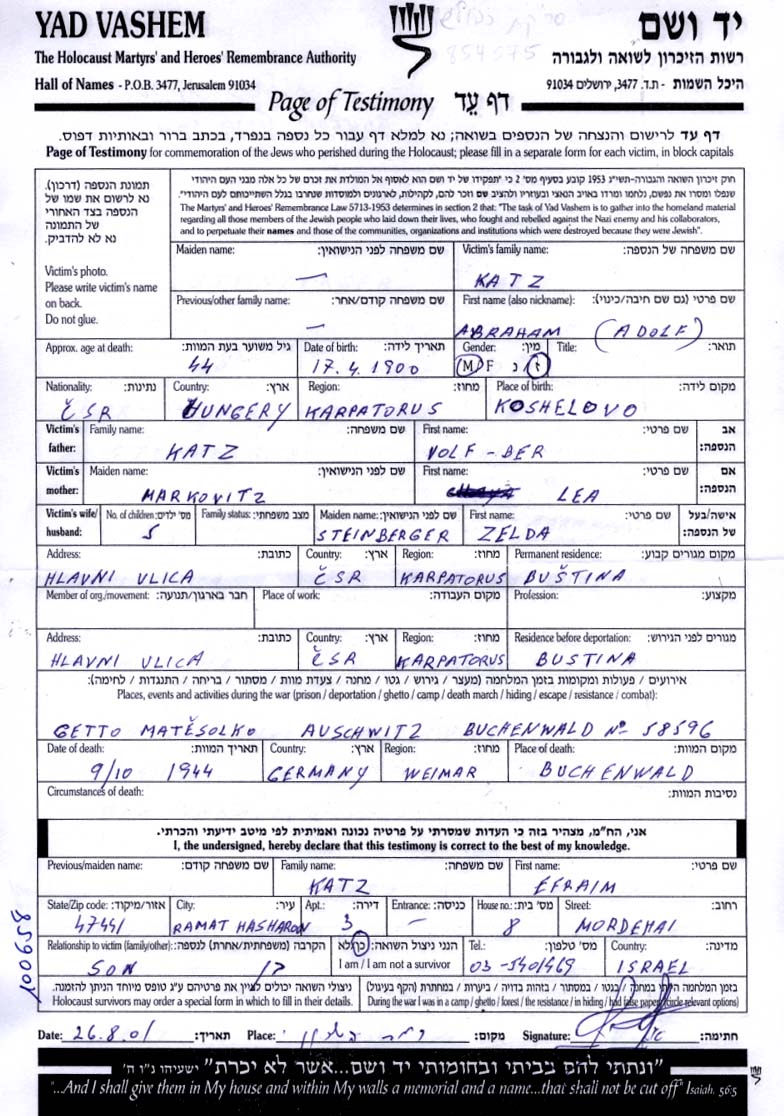 YAD VASHEM
יד ושם
The Holocaust Martyrs' and Heroes' Remembrance Authority
רשות הזיכרון לשואה ולגבורה
Hall of Names - P.O.B. 3477, Jerusalem 91034
היכל השמות - ת.ד. 3477, ירושלים 91034
854575
Page of Testimony דף עד
דף עד לרישום והנצחה של הנספים בשואה; נא למלא דף עבור כל נספה בנפרד, בכתב ברור ובאותיות דפוס.
Page of Testimony for commemoration of the Jews who perished during the Holocaust; please fill in a separate form for each victim, in block capitals
תמונת הנספה (דרכון).
נא לרשום את שמו של
הנספה בצד האחורי
של התמונה
נא לא להדביק.
Victim's photo.
Please write victim's name
on back.
Do not glue.
חוק זיכרון השואה והגבורה-תשי"ג 1953 קובע בסעיף מס' 2 כי "תפקידו של יד ושם הוא לאסוף אל המולדת את זכרם של כל אלה מבני העם היהודי
שנפלו ומסרו את נפשם, נלחמו ומרדו באויב הנאצי ובעוזריו ולהציב שם וזכר להם, לקהילות, לארגונים ולמוסדות שנחרבו בגלל השתייכותם לעם היהודי".
The Martyrs' and Heroes' Remembrance Law 5713-1953 determines in section 2 that: "The task of Yad Vashem is to gather into the homeland material
regarding all those members of the Jewish people who laid down their lives, who fought and rebelled against the Nazi enemy and his collaborators,
and to perpetuate their names and those of the communities, organizations and institutions which were destroyed because they were Jewish".
Maiden name: שם משפחה לפני הנישואין: Victim's family name: שם משפחה של הנספה:
— KATZ
Previous/other family name: שם משפחה קודם/אחר: First name (also nickname): שם פרטי (גם שם חיבה/כינוי):
— ABRAHAM (ADOLF)
Approx. age at death: גיל משוער בעת המוות: Date of birth: תאריך לידה: Gender: מין: Title: תואר:
44 17.4.1900 M F נ ז
Nationality: נתינות: Country: ארץ: Region: מחוז: Place of birth: מקום לידה:
ČSR HUNGERY KARPATORUS KOSHELOVO
Victim's father: Family name: שם משפחה: First name: שם פרטי: אב הנספה:
KATZ VOLF-BER
Victim's mother: Maiden name: שם לפני הנישואין: First name: שם פרטי: אם הנספה:
MARKOVITZ LEA
Victim's wife/husband: No. of children: מס' ילדים: Family status: מצב משפחתי: Maiden name: שם לפני הנישואין: First name: שם פרטי: אישה/בעל של הנספה:
5 STEINBERGER ZELDA
Address: כתובת: Country: ארץ: Region: מחוז: Permanent residence: מקום מגורים קבוע:
HLAVNI ULICA ČSR KARPATORUS BUŠTINA
Member of org./movement: חבר בארגון/תנועה: Place of work: מקום העבודה: Profession: מקצוע:
Address: כתובת: Country: ארץ: Region: מחוז: Residence before deportation: מגורים לפני הגירוש:
HLAVNI ULICA ČSR KARPATORUS BUSTINA
אירועים / פעולות ומקומות בזמן המלחמה (מעצר / גירוש / גטו / מחנה / צעדת מוות / מסתור / בריחה / התנגדות / לחימה):
Places, events and activities during the war (prison / deportation / ghetto / camp / death march / hiding / escape / resistance / combat):
GETTO MATĚSOLKO AUSCHWITZ BUCHENWALD No 58596
Date of death: תאריך המוות: Country: ארץ: Region: מחוז: Place of death: מקום המוות:
9/10 1944 GERMANY WEIMAR BUCHENWALD
Circumstances of death: נסיבות המוות:
אני, הח"מ, מצהיר בזה כי העדות שמסרתי על פרטיה נכונה ואמיתית לפי מיטב ידיעתי והכרתי.
I, the undersigned, hereby declare that this testimony is correct to the best of my knowledge.
Previous/maiden name: שם משפחה קודם: Family name: שם משפחה: First name: שם פרטי:
KATZ EFRAIM
State/Zip code: אזור/מיקוד: City: עיר: Apt.: דירה: Entrance: כניסה: House no.: מס' בית: Street: רחוב:
47441 RAMAT HASHARON 3 — 8 MORDEHAI
Relationship to victim (family/other): הקרבה (משפחתית/אחרת) לנספה: הנני ניצול השואה: כן/לא Tel.: מס' טלפון: Country: מדינה:
SON בן I am / I am not a survivor 03-5401469 ISRAEL
ניצולי השואה יכולים לציין את פרטיהם ע"ג טופס מיוחד הניתן להזמנה.
Holocaust survivors may order a special form in which to fill in their details.
בזמן המלחמה הייתי במחנה / בגטו / במסתור / בזהות בדויה / ביערות / במחתרת (הקף בעיגול)
During the war I was in a camp / ghetto / forest / the resistance / in hiding / had false papers (circle relevant options)
100658
Date: 26.8.01 תאריך: Place: רמת השרון מקום: Signature: חתימה:
"ונתתי להם בביתי ובחומותי יד ושם...אשר לא יכרת" ישעיהו נ"ו ה'
"...And I shall give them in My house and within My walls a memorial and a name...that shall not be cut off" Isaiah. 56:5